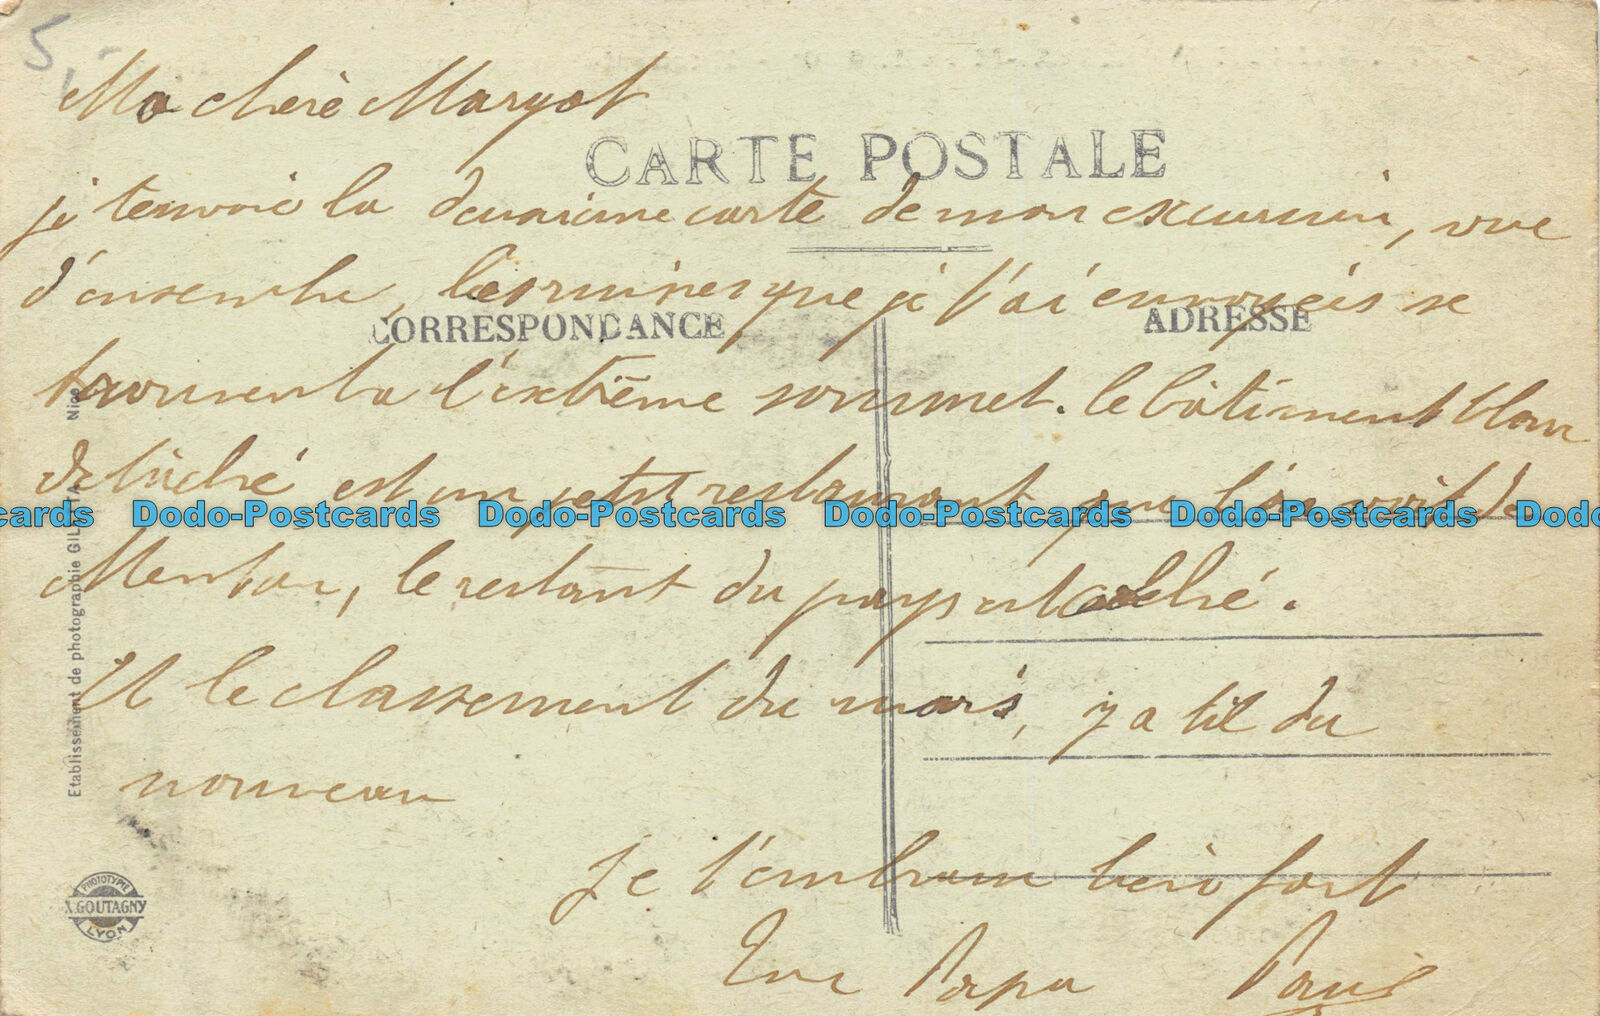 5,-
Ma chère Margot
CARTE POSTALE
je t'envoie la deuxième carte de mon excursion, vue
d'ensemble, les ruines que je t'ai envoyées se
CORRESPONDANCE
ADRESSE
trouvent a l'extrême sommet. le bâtiment blanc
détaché est un petit restaurant que l'on voit de
Menton, le restant du pays est caché.
Et le classement du mars, y a til du
nouveau
Je t'embrasse bien fort
Ton Papa Louis
Etablissement de photographie GILETTA, Nice
PHOTOTYPIE
X. GOUTAGNY
LYON
Dodo-Postcards Dodo-Postcards Dodo-Postcards Dodo-Postcards